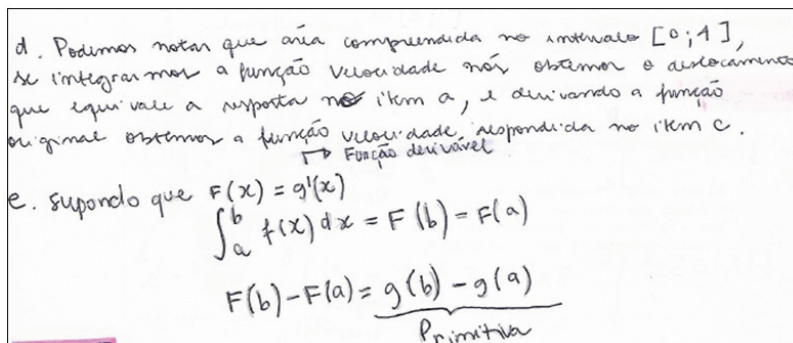 d. Podemos notar que área compreendida no intervalo [0;1],
se integrarmos a função velocidade nós obtemos o deslocamento
que equivale a resposta no item a, e derivando a função
original obtemos a função velocidade, respondida no item c.
↳ Função derivável
e. supondo que F(x) = g'(x)
∫ₐᵇ f(x) dx = F(b) - F(a)
F(b) - F(a) = g(b) - g(a)
Primitiva